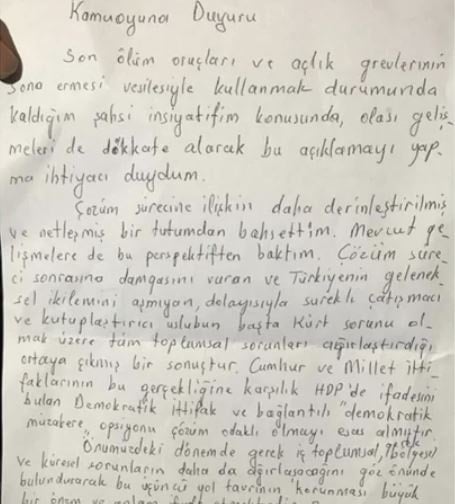 Kamuoyuna Duyuru
Son ölüm oruçları ve açlık grevlerinin
sona ermesi vesilesiyle kullanmak durumunda
kaldığım şahsi insiyatifim konusunda, olası geliş-
meleri de dikkate alarak bu açıklamayı yap-
ma ihtiyacı duydum.
Çözüm sürecine ilişkin daha derinleştirilmiş
ve netleşmiş bir tutumdan bahsettim. Mevcut ge-
lişmelere de bu perspektiften baktım. Çözüm süre-
ci sonrasına damgasını vuran ve Türkiyenin gelenek-
sel ikilemini aşmıyan, dolayısıyla sürekli çatışmacı
ve kutuplaştırıcı uslubun başta Kürt sorunu ol-
mak üzere tüm toplumsal sorunları ağırlaştırdığı
ortaya çıkmış bir sonuçtur. Cumhur ve Millet itti-
faklarının bu gerçekliğine karşılık HDP'de ifadesini
bulan Demokratik ittifak ve bağlantılı "demokratik
müzakere" opsiyonu çözüm odaklı olmayı esas almıştır.
Önümüzdeki dönemde gerek iç toplumsal, gerek bölgesel
ve küresel sorunların daha da ağırlaşacağını göz önünde
bulundurarak bu üçüncü yol tavrının korunması büyük
bir önem ve anlam